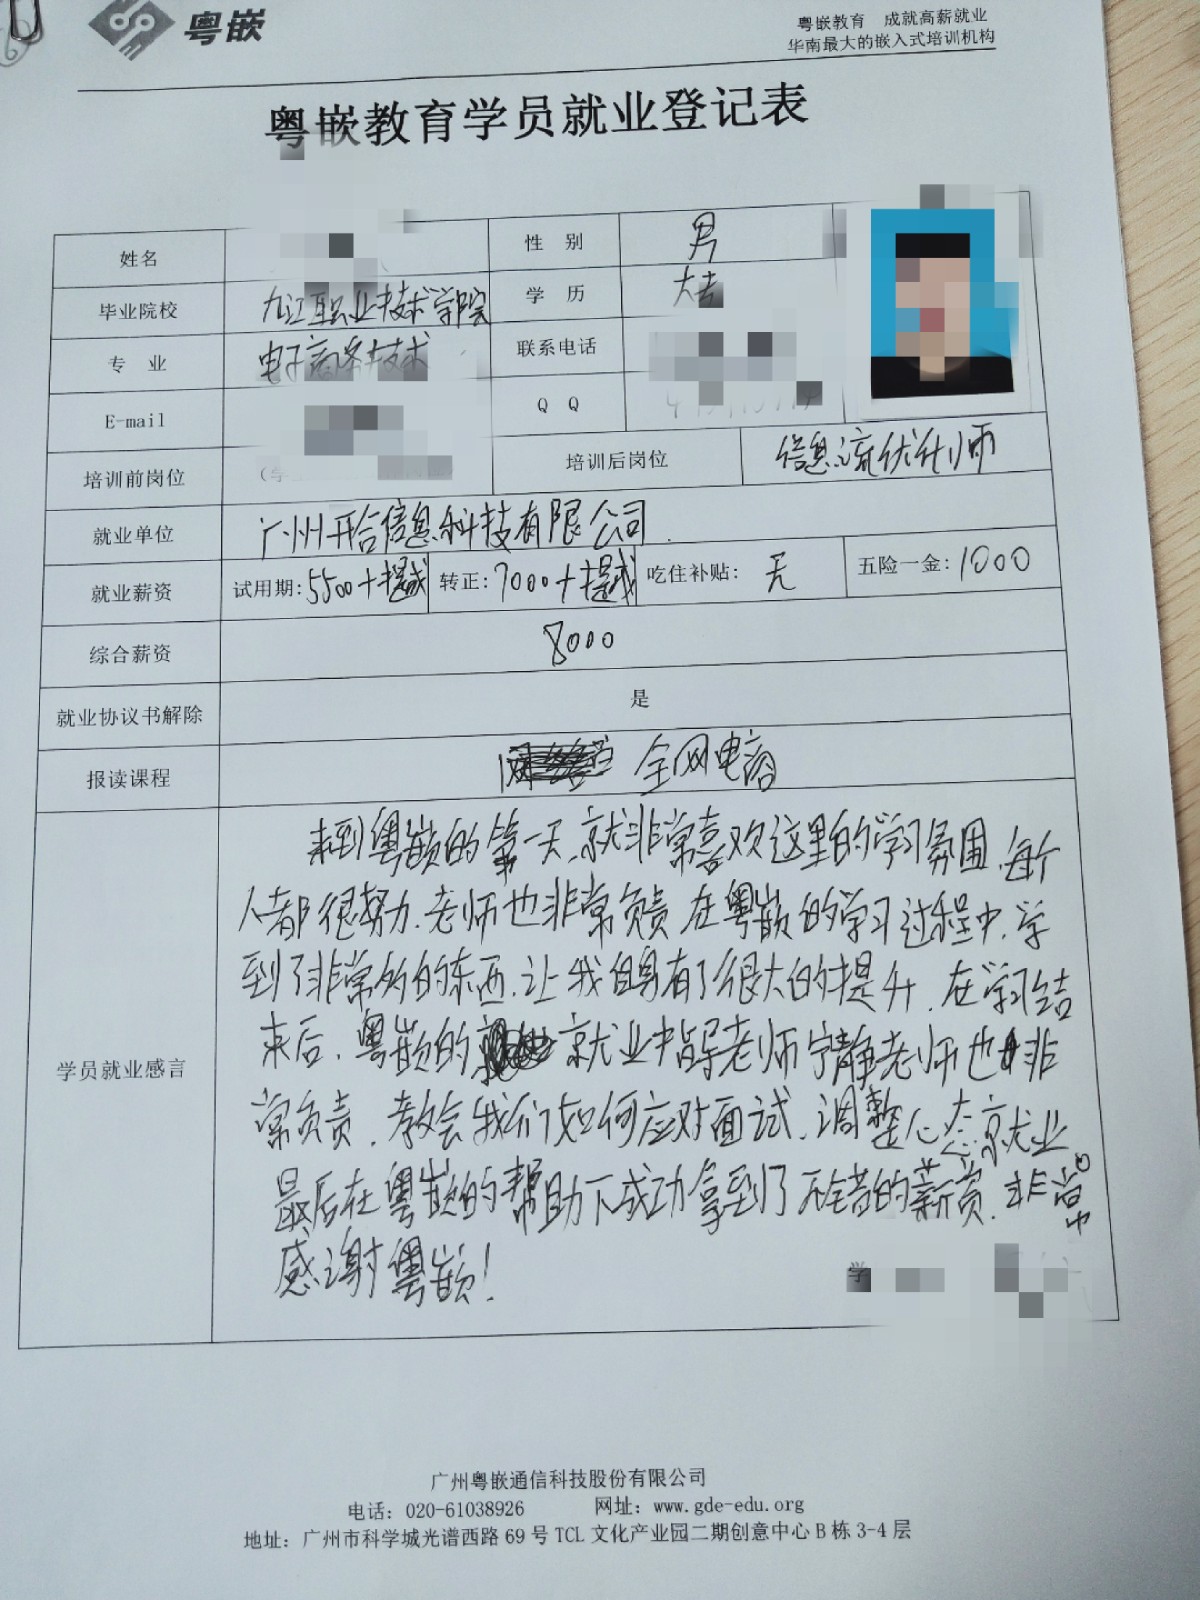 粤嵌
粤嵌教育 成就高薪就业
华南最大的嵌入式培训机构
粤嵌教育学员就业登记表
姓名
性 别 男
毕业院校 九江职业技术学院 学 历 大专
专 业 电子商务技术 联系电话
E-mail Q Q
培训前岗位 培训后岗位 信息流优化师
就业单位 广州开合信息科技有限公司.
就业薪资 试用期: 5500+提成 转正: 7000+提成 吃住补贴: 无 五险一金: 1000
综合薪资 8000
就业协议书解除 是
报读课程 全网电商
学员就业感言
来到粤嵌的第一天,就非常喜欢这里的学习氛围,每个
人都很努力,老师也非常负责在粤嵌的学习过程中,学
到了非常多的东西,让我自身有了很大的提升,在学习结
束后,粤嵌的 就业指导老师宁静老师也非
常负责,教会我们如何应对面试,调整心态就业
最后在粤嵌的帮助下成功拿到了不错的薪资,非常
感谢粤嵌!
学
广州粤嵌通信科技股份有限公司
电话: 020-61038926 网址: www.gde-edu.org
地址: 广州市科学城光谱西路 69 号 TCL 文化产业园二期创意中心 B 栋 3-4 层